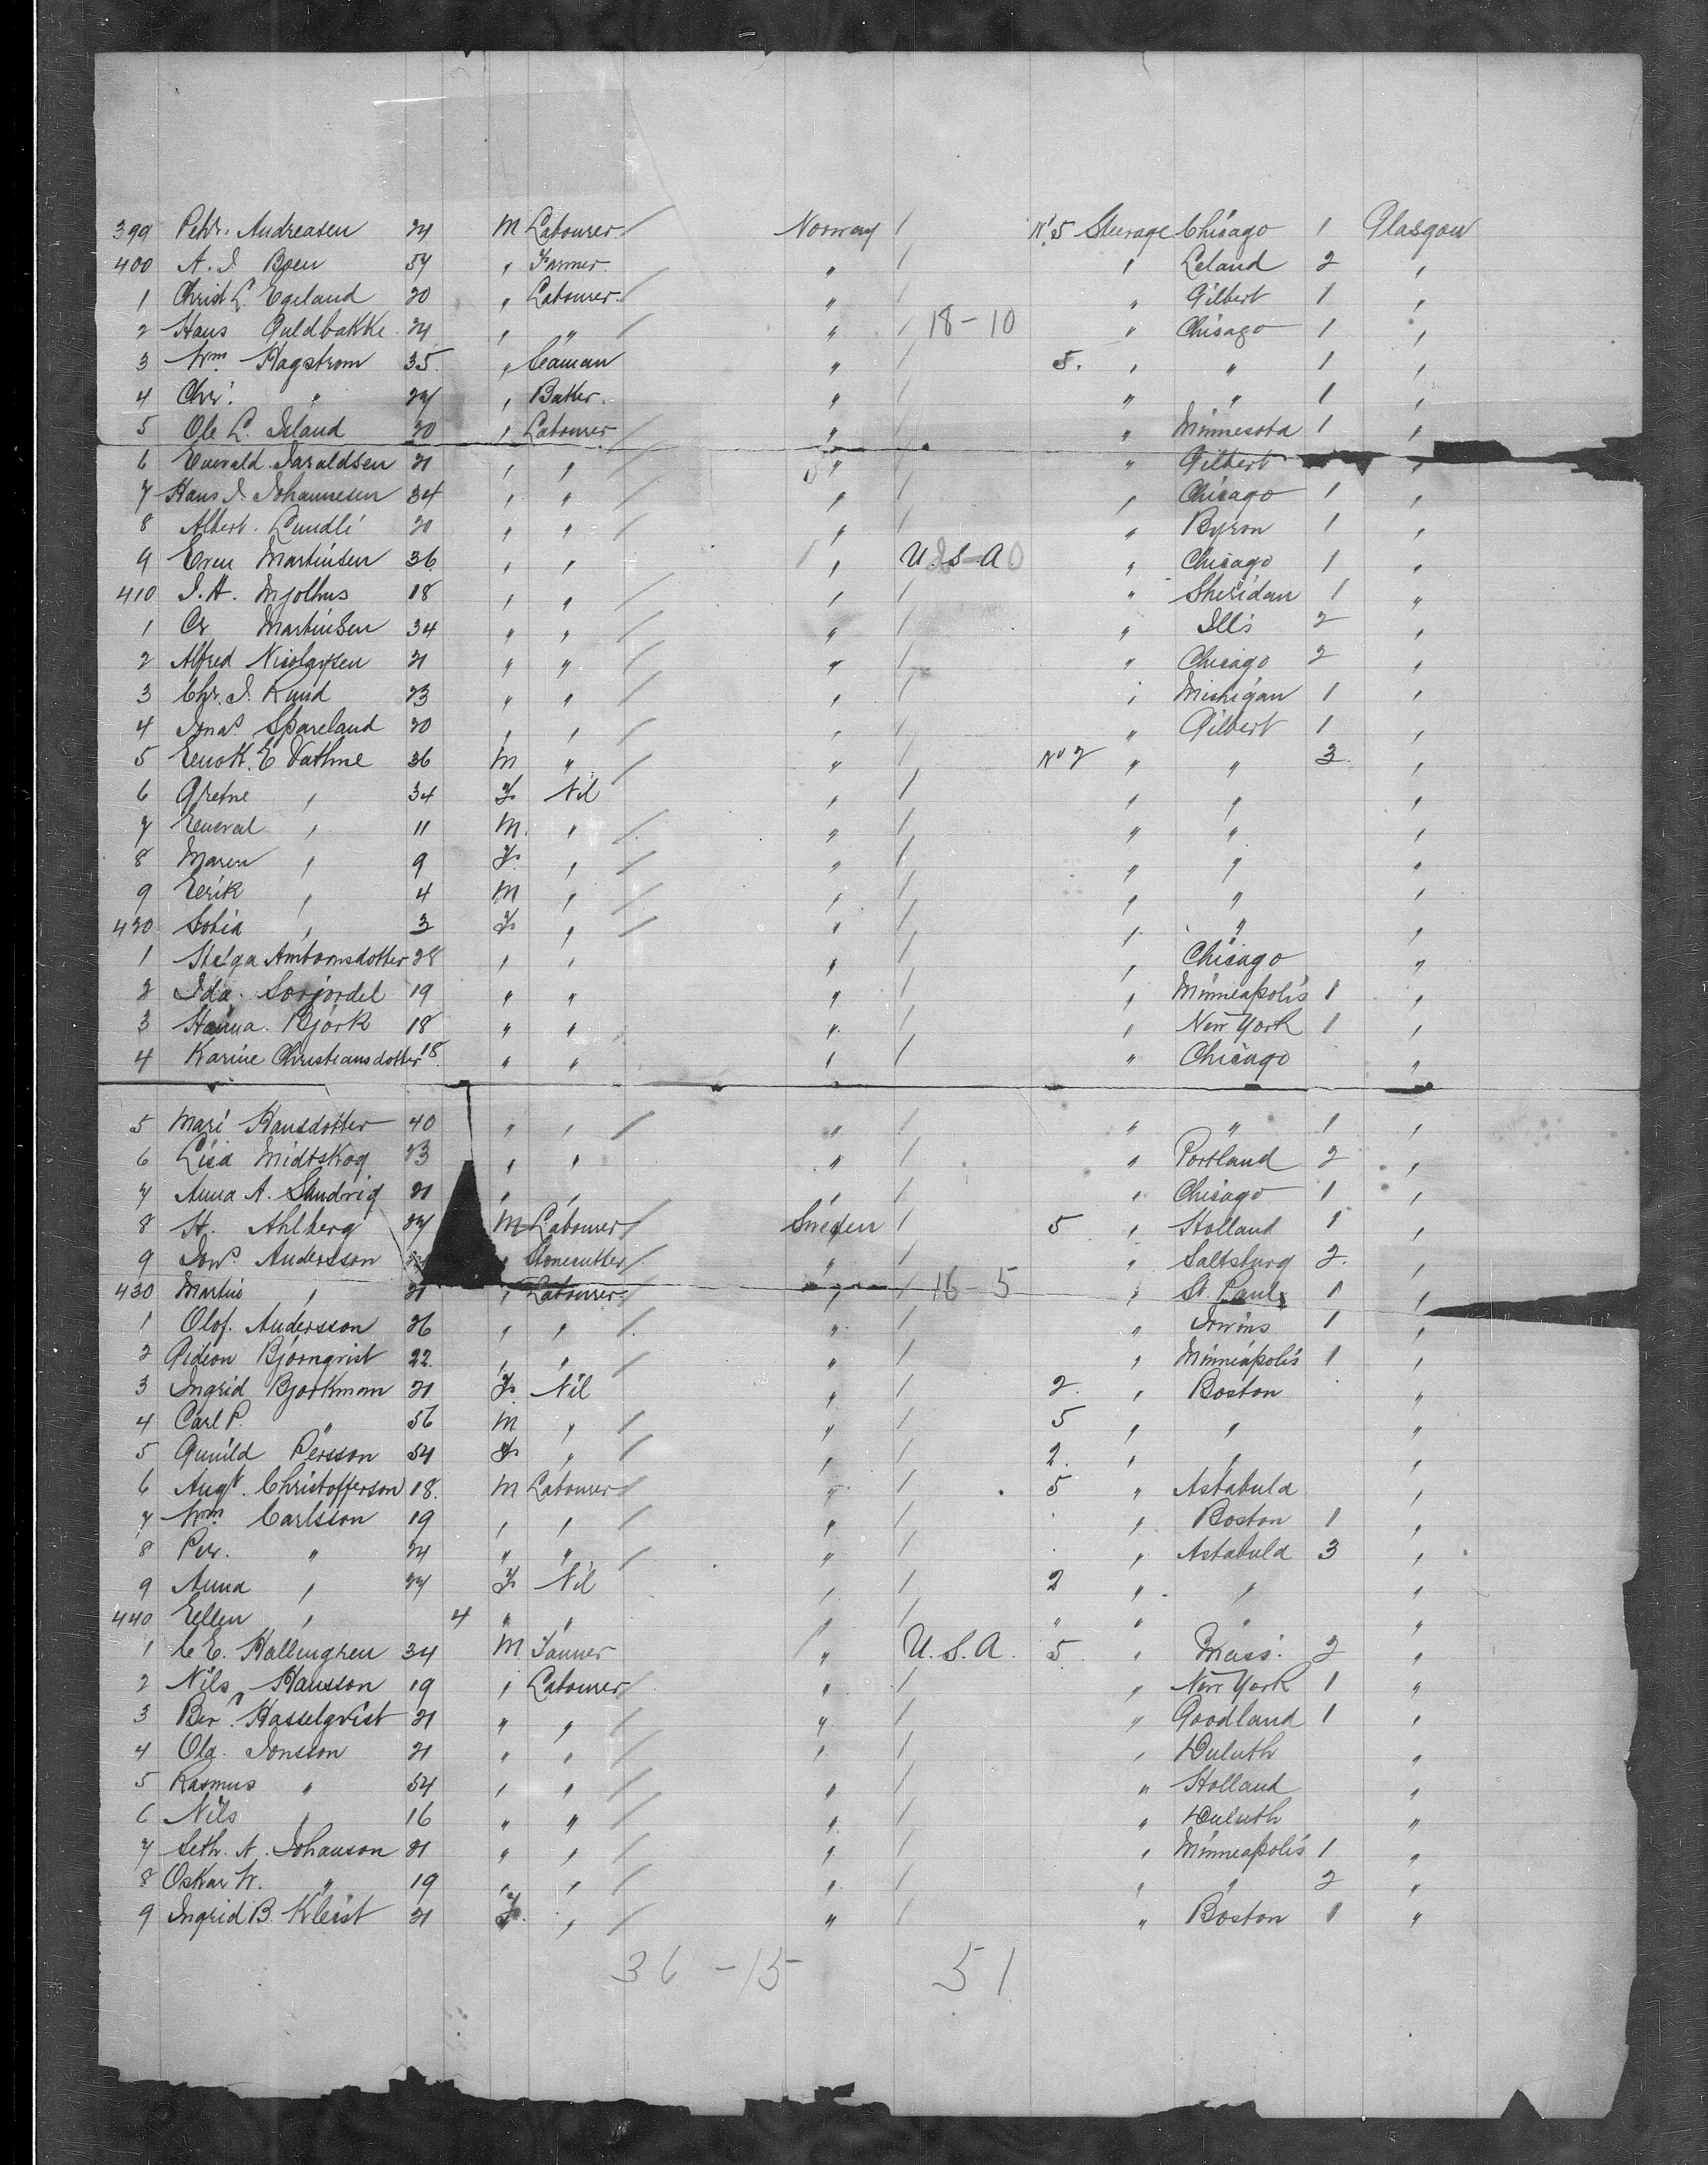 399 Petr. Andreasen 24 M Labourer / Norway / No. 5 Steerage Chicago 1 Glasgow
400 A. I. Boen 54 " Farmer " / " Leland 2 "
1 Christ L. Egeland 20 " Labourer / " / " Gilbert 1 "
2 Hans Guldbakke 24 " " / " / 18-10 " Chicago 1 "
3 Wm. Hagstrom 35 " Seaman " / 5. " " 1 "
4 Chr. " 27 " Baker " / " " 1 "
5 Ole L. Island 20 " Labourer / " / " Minnesota 1 "
6 Enevald Jaraldsen 21 " " / " / " Gilbert "
7 Hans I. Johannesen 34 " " / " / " Chicago 1 "
8 Albert Lundli 21 " " / " / " Byron 1 "
9 Even Martinsen 36 " " / " U.S.A " Chicago 1 "
410 I. H. Mjolhus 18 " " / " / " Sheridan 1 "
1 Cr Martinsen 34 " " / " / " Ills 2 "
2 Alfred Nicolaysen 21 " " / " / " Chicago 2 "
3 Chr. I. Rund 23 " " / " / " Michigan 1 "
4 Jonas Spareland 20 " " / " / " Gilbert 1 "
5 E. Vathne 36 M " / " / No 2 " " 3 "
6 Gretne " 34 F Nil " / " " "
7 Eneval " 11 M " / " / " " "
8 Maren " 9 F " / " / " " "
9 Eerik " 4 M " / " / " " "
420 Sofia " 3 F " / " / " " "
1 Helga Antonsdotter 28 " " " / " Chicago "
2 Ida Sorjordel 19 " " " / " Minneapolis 1 "
3 Hanna Bjork 18 " " " / " New York 1 "
4 Karine Christiansdotter 18 " " " / " Chicago "
5 Mari Hansdotter 40 " " / " / " " 1 "
6 Lisa Midtskog 23 " " " / " Portland 2 "
7 Anna A. Sandvig 21 " " " / " Chicago 1 "
8 H. Ahlberg 27 M Labourer / Sweden / 5 " Holland 1 "
9 Jons Andersson " Stonecutter / " / " Saltsburg 2 "
430 Martin " 21 " Labourer / " / 16 5 " St. Paul 1 "
1 Olof. Andersson 26 " " / " / " Irwins 1 "
2 Gideon Bjornqvist 22 " " / " / " Minneapolis 1 "
3 Ingrid Bjorkman 21 F Nil " / 2 " Boston "
4 Carl P. " 56 M " / " / 5 " " "
5 Gunild Persson 54 F " / " / 2 " " "
6 Augt. Christofferson 18 M Labourer / " / 5 " Astabula "
7 Wm Carlsson 19 " " / " / " Boston 1 "
8 Per. " 24 " " / " / " Astabula 3 "
9 Anna " 27 F Nil " / 2 " " "
440 Eellen " 4 " " " / " " " "
1 C E. Hallengren 34 M Tanner / " U.S.A. 5 " Mass. 2 "
2 Nils Hansson 19 " Labourer / " / " New York 1 "
3 Ber. Hasselqvist 21 " " / " / " Goodland 1 "
4 Ola Jonsson 21 " " / " / " Duluth "
5 Rasmus " 54 " " / " / " Holland "
6 Nils " 16 " " / " / " Duluth "
7 Seth. A. Johanson 21 " " / " / " Minneapolis 1 "
8 Oskar W. " 19 " " / " / " " 2 "
9 Ingrid B. Kleist 21 F " / " / " Boston 1 "
36 - 15 51